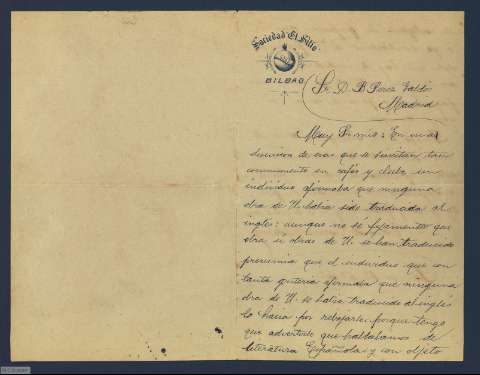 Sociedad "El Sitio"
BILBAO
Sr. D. B. Perez Galdós
Madrid
Muy Sr. mio: En una
discusion de esas que se suscitan tan
comunmente en cafés y clubs un
individuo afirmaba que ninguna
obra de U. habia sido traducida al
inglés: aunque no sé fijamente que
obra ú obras de U. se han traducido
presumia que el individuo que con
tanta griteria afirmaba que ninguna
obra de U. se habia traducido al inglés
lo hacia por rebajarle porque tengo
que advertirle que hablabamos de
literatura Española y con objeto